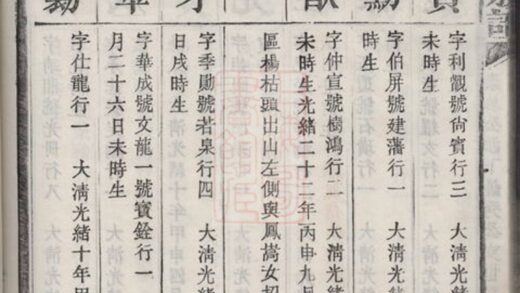 字利觀號尙賓行三 大淸光緒
未時生
字伯屏號建藩行一 大淸光緒
時生
字仲宣號樹鴻行二 大淸光緒
未時生光緒二十二年丙申九月
區楊枯頭出山左側與鳳蒿女
字季勛號若泉行四 大淸光緒
日戌時生
字華成號文龍一號寶銓行一
月二十六日未時生
字仕龍行一 大淸光緒十年甲